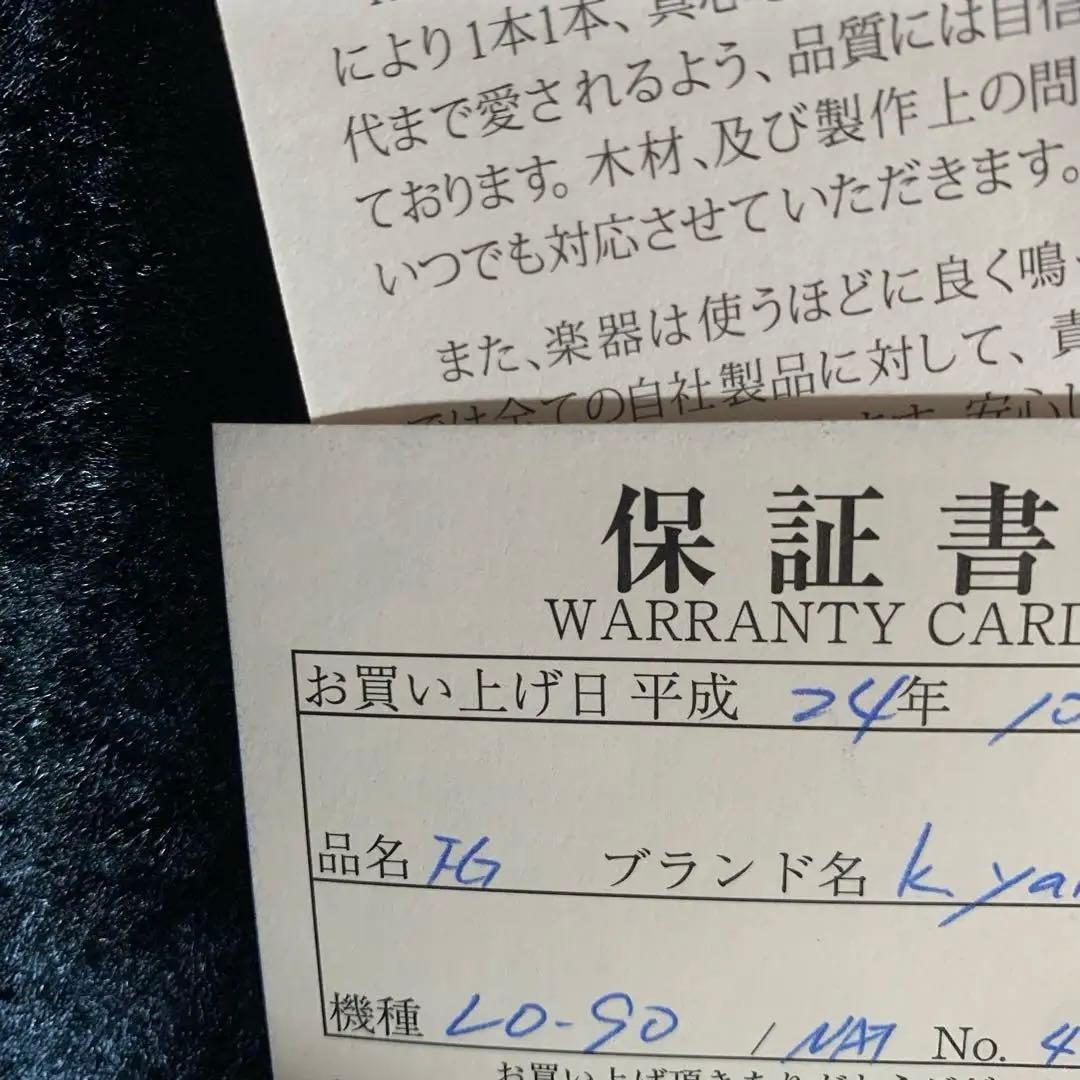 により1本1本、真心
代まで愛されるよう、品質には自信
ております。木材、及び製作上の問
いつでも対応させていただきます。
また、楽器は使うほどに良く鳴
では全ての自社製品に対して、責
ます。安心
保証書
WARRANTY CARD
お買い上げ日 平成 24年 10
品名 FG ブランド名 k. yai
機種 LO-90 / NAT No. 4
お買い上げ頂きありがとうござ